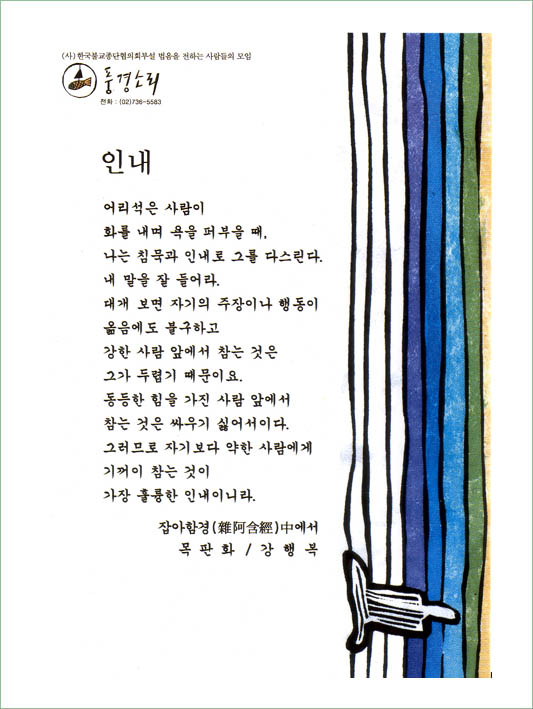 (사)한국불교종단협의회부설 법음을 전하는 사람들의 모임
풍경소리
전화 : (02)736-5583
인내
어리석은 사람이
화를 내며 욕을 퍼부을 때,
나는 침묵과 인내로 그를 다스린다.
내 말을 잘 들어라.
대개 보면 자기의 주장이나 행동이
옳음에도 불구하고
강한 사람 앞에서 참는 것은
그가 두렵기 때문이요.
동등한 힘을 가진 사람 앞에서
참는 것은 싸우기 싫어서이다.
그러므로 자기보다 약한 사람에게
기꺼이 참는 것이
가장 훌륭한 인내이니라.
잡아함경(雜阿含經)中에서
목판화 / 강행복